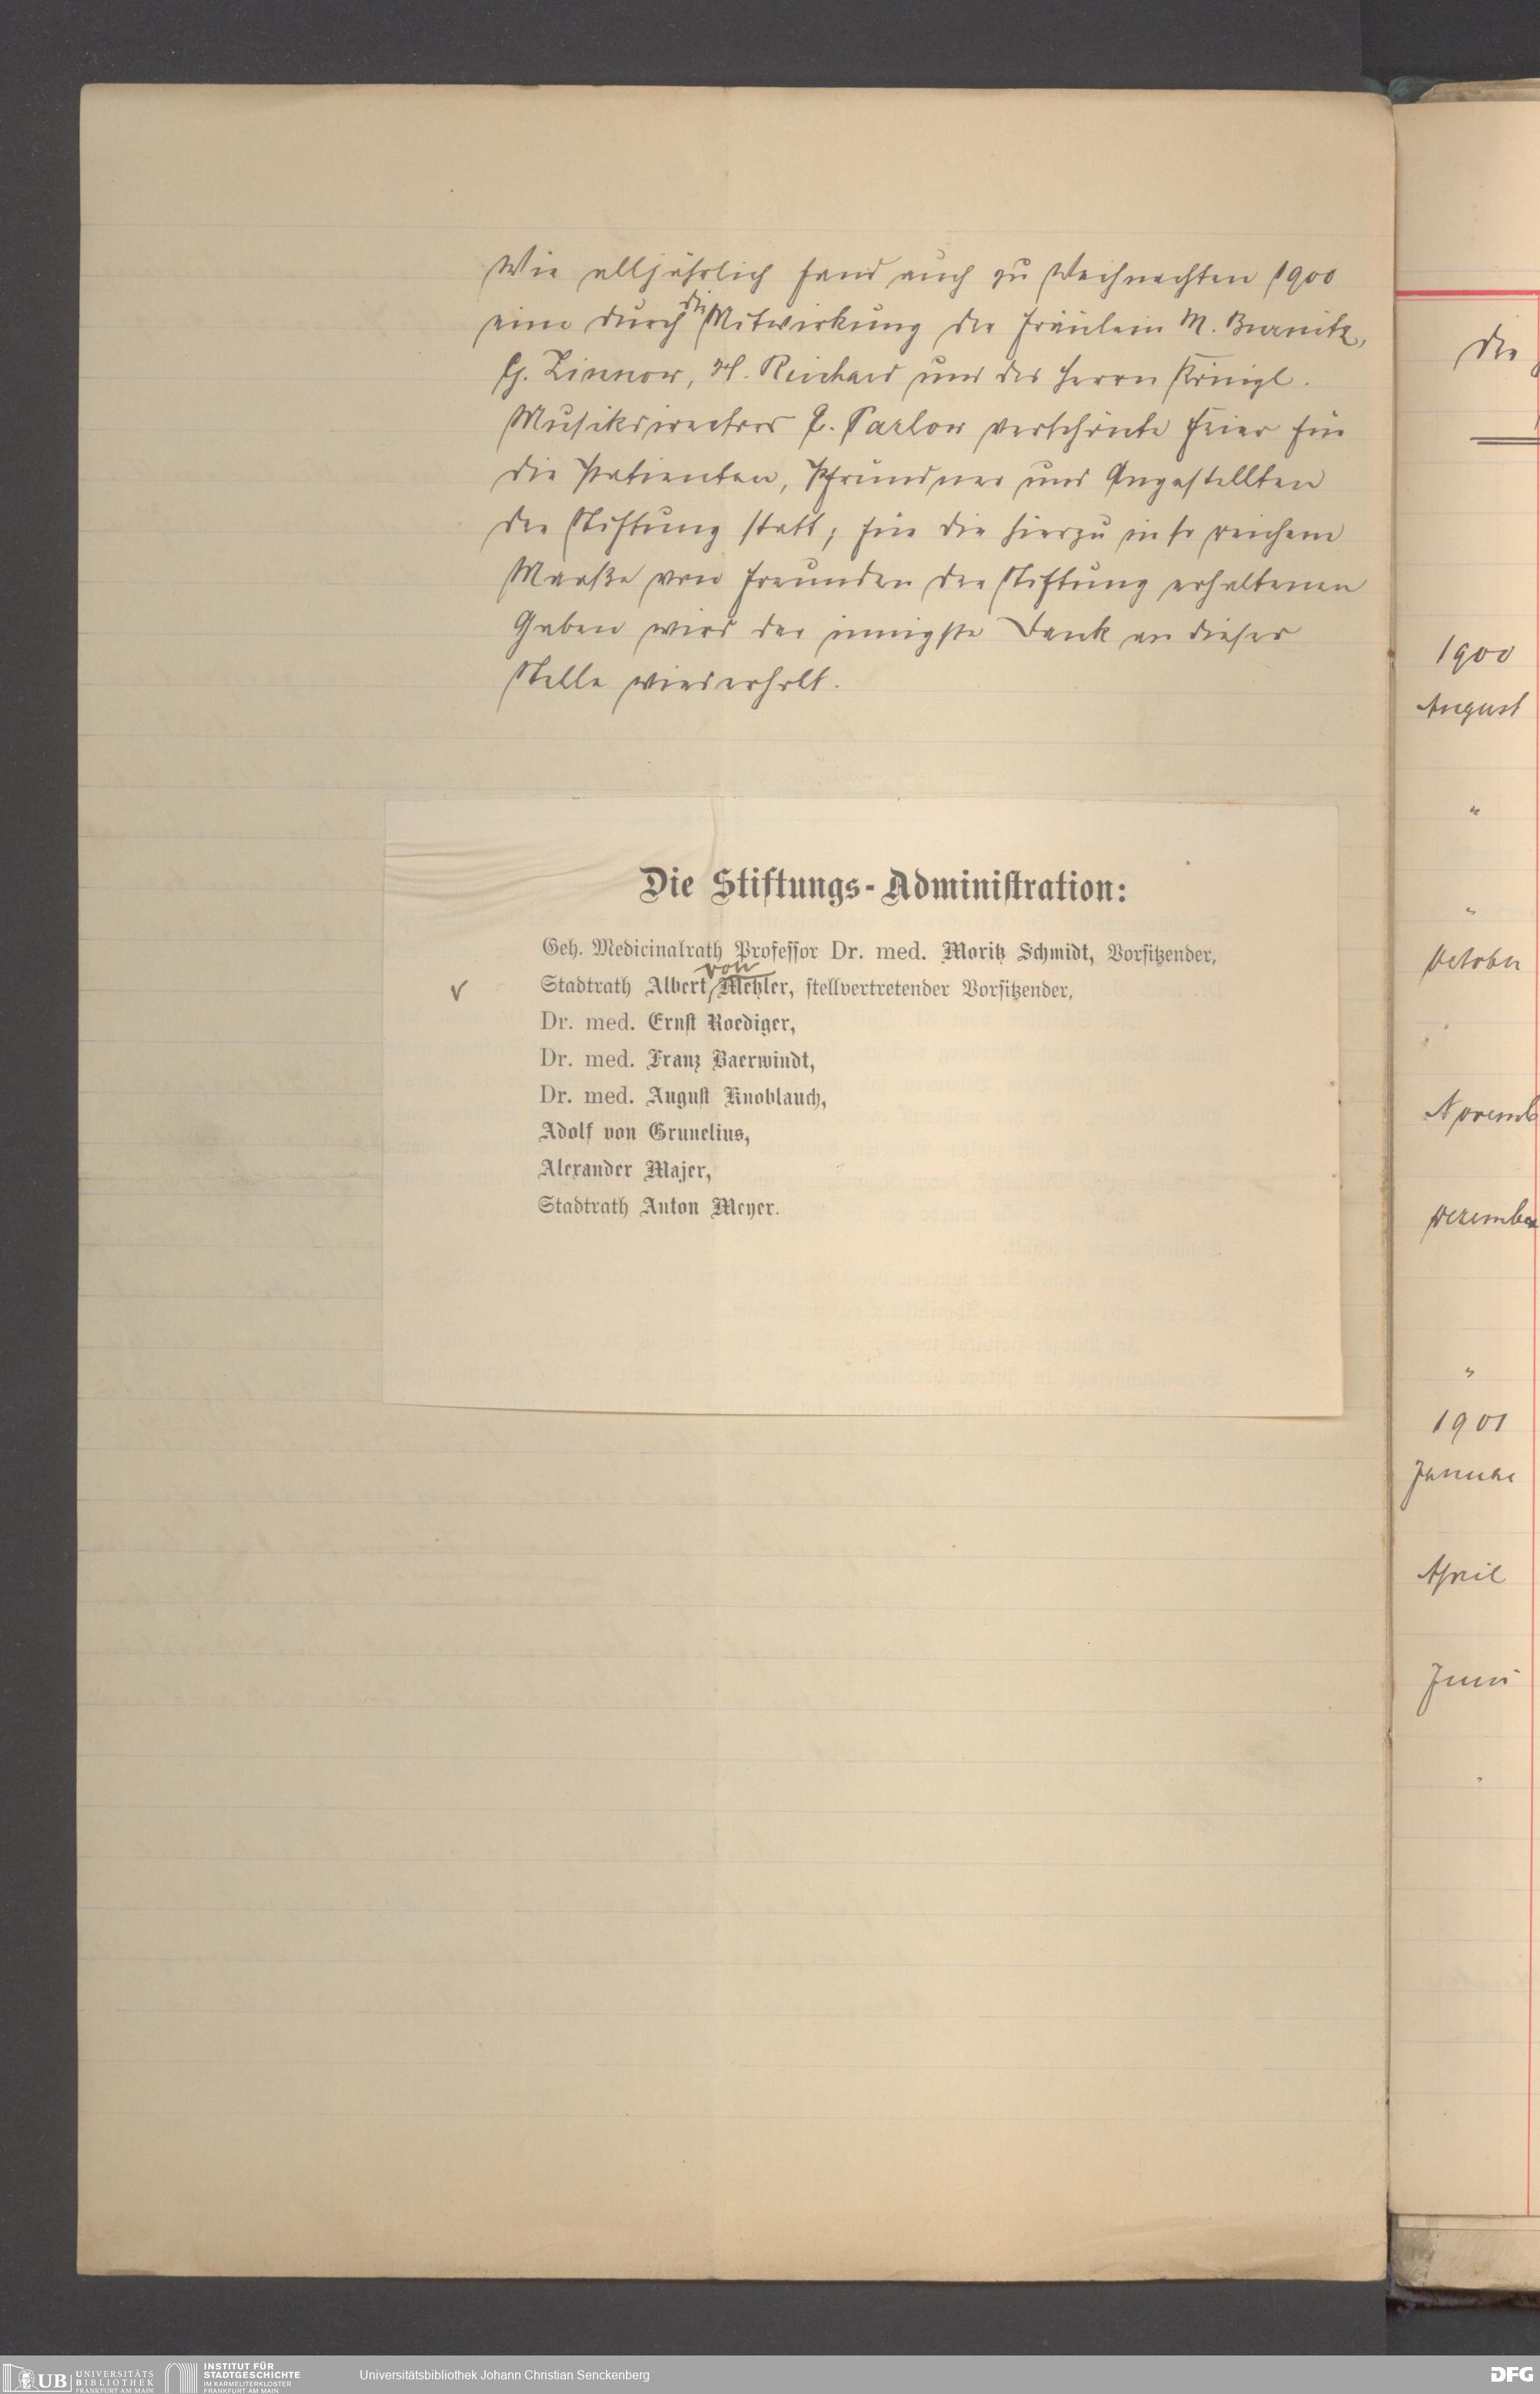 Wie alljährlich fand auch zu Weihnachten 1900
eine durch die Mitwirkung der Fräulein M. Burnitz,
G. Linnow, H. Reichard und des Herrn Königl.
Musikdirectors E. Parlow verschönte Feier für
die Patienten, Pfründner und Angestellten
der Stiftung statt; für die hierzu in so reichem
Maaße von Freunden der Stiftung erhaltenen
Gaben wird der innigste Dank an dieser
Stelle wiederholt.
Die Stiftungs-Administration:
Geh. Medicinalrath Professor Dr. med. Moritz Schmidt, Vorsitzender,
Stadtrath Albert von Metzler, stellvertretender Vorsitzender,
Dr. med. Ernst Roediger,
Dr. med. Franz Baerwindt,
Dr. med. August Knoblauch,
Adolf von Grunelius,
Alexander Majer,
Stadtrath Anton Meyer.
Die
1900
August
"
"
October
Novemb
Dezember
"
1901
Januar
April
Juni
UB UNIVERSITÄTS
BIBLIOTHEK
FRANKFURT AM MAIN
INSTITUT FÜR
STADTGESCHICHTE
IM KARMELITERKLOSTER
FRANKFURT AM MAIN
Universitätsbibliothek Johann Christian Senckenberg
DFG